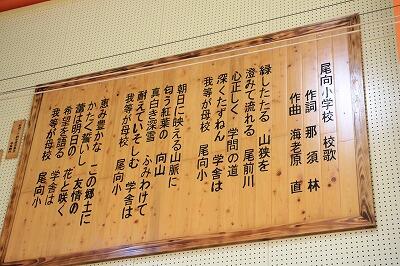 尾向小学校 校歌
作詞 那須 林
作曲 海老原 直
緑したたる 山狭を
澄みて流れる 尾前川
心正しく 学問の道
深くたずねん 学舎は
我等が母校 尾向小
朝日に映える山脈に
匂う紅葉の 向山
真白き深雪 ふみわけて
耐えていそしむ 学舎は
我等が母校 尾向小
恵み豊かな この郷土に
かたく誓いし 友情の
蕾は明日の 花と咲く
希望を語る 学舎は
我等が母校 尾向小